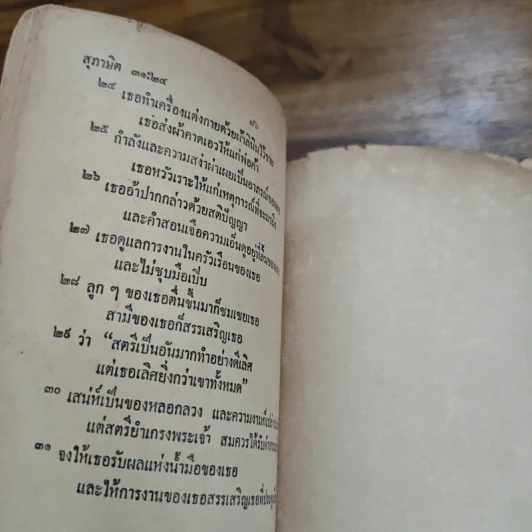 สุภาษิต ๓๑:๒๔
๘๖
๒๔ เธอทำเครื่องแต่งกายด้วยผ้าลินินไว้ขาย
เธอส่งผ้าคาดเอวให้แก่พ่อค้า
๒๕ กำลังและความสง่าผ่าเผยเป็นอาภรณ์ของเธอ
เธอหัวเราะให้แก่เหตุการณ์ที่จะมาถึง
๒๖ เธออ้าปากกล่าวด้วยสติปัญญา
และคำสอนเจือความเอ็นดูอยู่ที่ลิ้นของเธอ
๒๗ เธอดูแลการงานในครัวเรือนของเธอ
และไม่ชุบมือเปิบ
๒๘ ลูก ๆ ของเธอตื่นขึ้นมาก็ชมเชยเธอ
สามีของเธอก็สรรเสริญเธอ
๒๙ ว่า “สตรีเป็นอันมากทำอย่างดีเลิศ
แต่เธอเลิศยิ่งกว่าเขาทั้งหมด”
๓๐ เสน่ห์เป็นของหลอกลวง และความงามก็
แต่สตรียำเกรงพระเจ้า สมควรได้รับ
๓๑ จงให้เธอรับผลแห่งน้ำมือของเธอ
และให้การงานของเธอสรรเสริญเธอที่